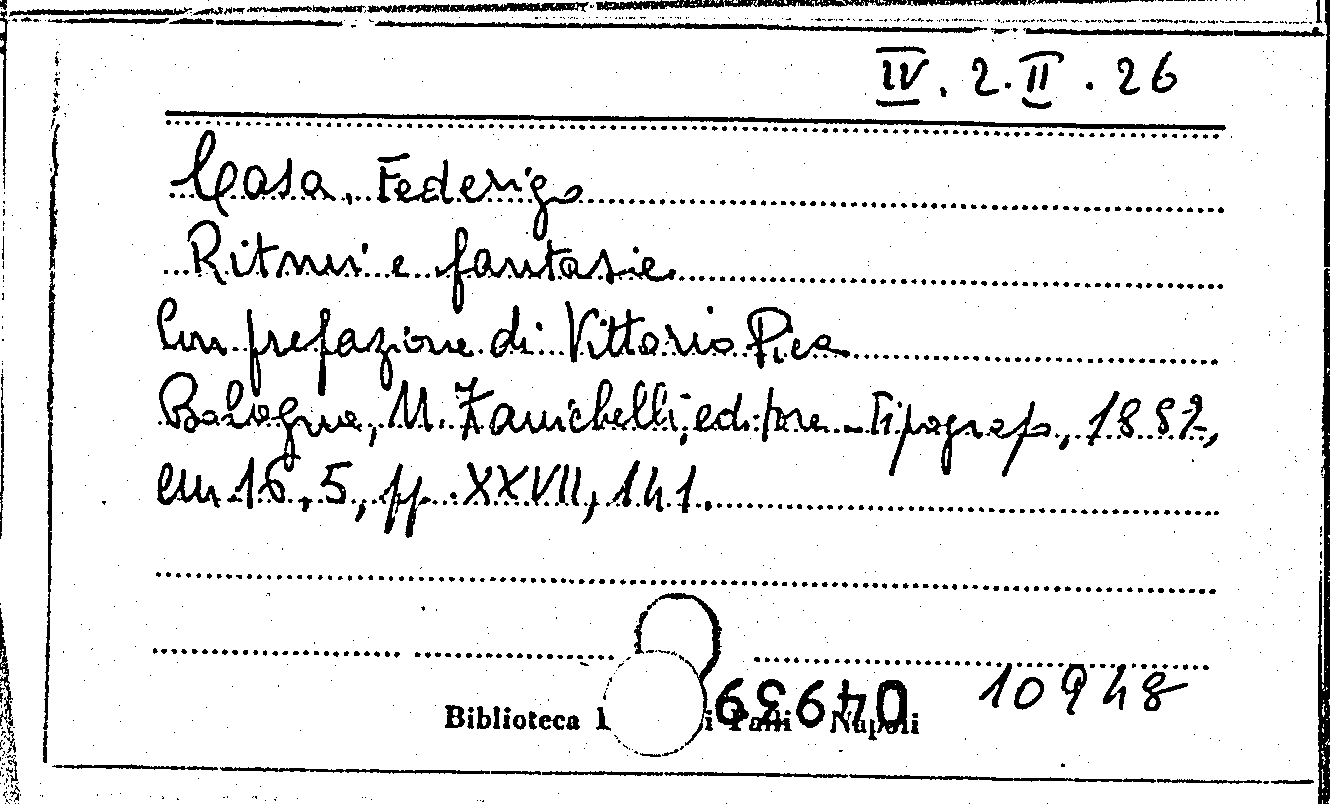 IV. 2. II. 26
Casa, Federigo
Ritmi e fantasie.
Con prefazione di Vittorio Pica
Bologna, N. Zanichelli, editore-tipografo, 1882,
em 16,5, pp. XXVII, 141.
10948
Biblioteca Napoli